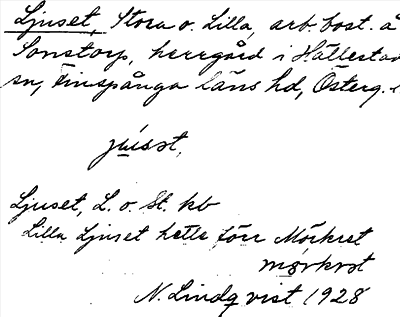 Ljuset, Stora o. Lilla, arb. bost. å
Sonstorp, herrgård i Hällestad
sn, Finspånga läns hd, Österg.
jʉ́sət,
Ljuset, L. o. St. kb
Lilla Ljuset hette förr Mörkret
N. Lindqvist 1928